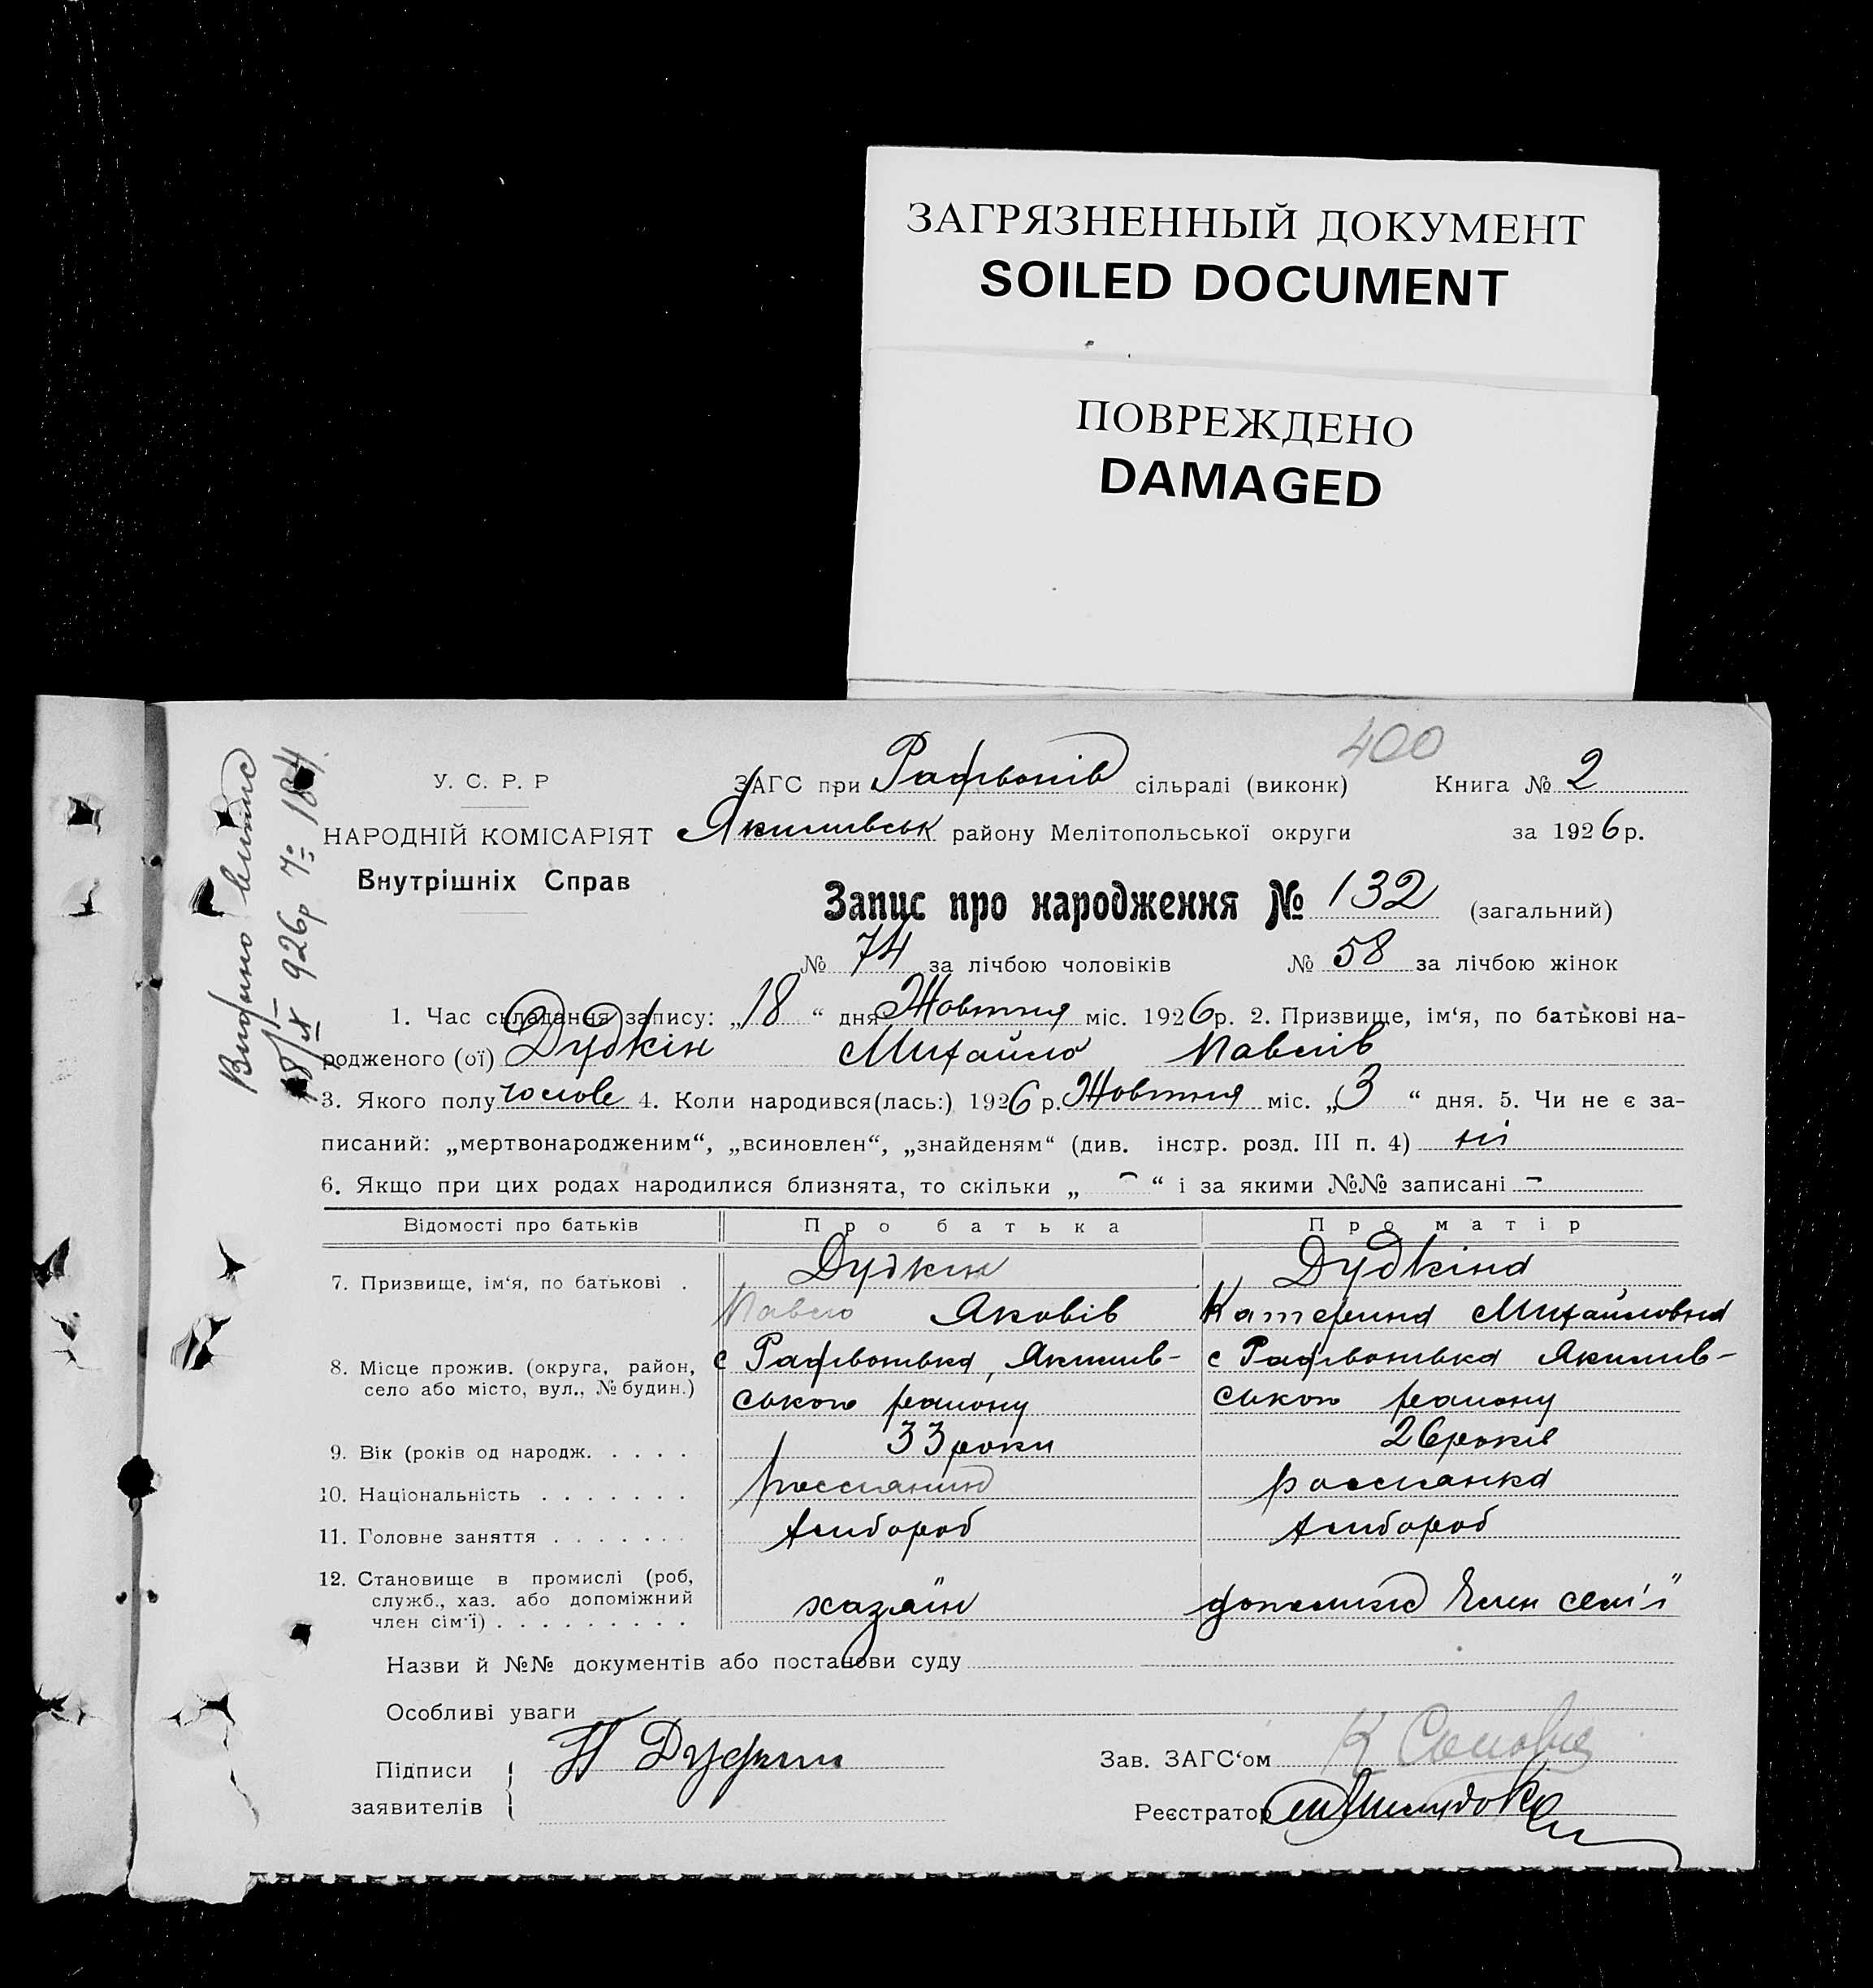 ЗАГРЯЗНЕННЫЙ ДОКУМЕНТ
SOILED DOCUMENT
ПОВРЕЖДЕНО
DAMAGED
400
У. С. Р. Р
ЗАГС при сільраді (виконк) Книга № 2
НАРОДНІЙ КОМІСАРІЯТ Якимивськ району Мелітопольської округи за 1926 р.
Внутрішніх Справ
Запис про народження № 132 (загальний)
№ 74 за лічбою чоловіків № 58 за лічбою жінок
Видано випис
18/X 926р № 184
1. Час складання запису: „18“ дня Жовтня міс. 1926р. 2. Призвище, ім‘я, по батькові на-
родженого (ої) Дудкін Михайло Павлів
3. Якого полу чолове 4. Коли народився(лась:) 1926 р. Жовтня міс. „3“ дня. 5. Чи не є за-
писаний: „мертвонародженим“, „всиновлен“, „знайденям“ (див. інстр. розд. III п. 4) ні
6. Якщо при цих родах народилися близнята, то скільки „ - “ і за якими №№ записані -
Відомості про батьків Про батька Про матір
7. Призвище, ім‘я, по батькові . Дудкін Дудкіна
Павло Яковів Катерина Михайловна
8. Місце прожив. (округа, район, с Якимив- с Якимив-
село або місто, вул., № будин.) ського району ського району
9. Вік (років од народж. . . . . 33 роки 26 років
10. Національність . . . . . . . россианин россианка
11. Головне заняття . . . . . . . хлібороб хлібороб
12. Становище в промислі (роб,
служб., хаз. або допоміжний хазяїн член сем'ї
член сім‘ї) . . . . . . . . .
Назви й №№ документів або постанови суду
Особливі уваги
Підписи П Дудкин Зав. ЗАГС‘ом К
заявителів Реєстратор